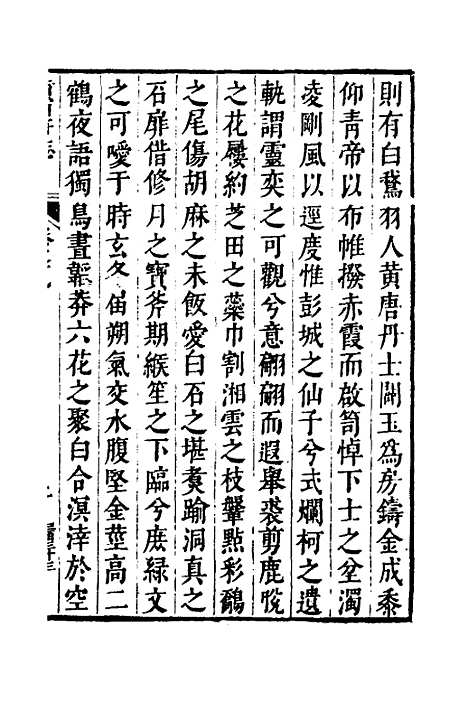 則有白鵞羽人黄唐丹士闢玉為房鑄金成黍
仰青帝以布帷撥赤霞而啟笥悼下士之坌濁
凌剛風以遥度惟彭城之仙子兮式爛柯之遺
軌謂靈奕之可觀兮意翩翩而遐舉裘剪鹿
之花屦約芝田之蘂巾割湘雲之枝鞶㸃彩鷸
之尾傷胡麻之未飯愛白石之堪煑踰洞真之
石扉借修月之寶斧期緱笙之下臨兮庶緑文
之可噯于時玄冬届朔氣交水腹堅金莖高二
鶴夜語獨鳥晝韜莽六花之聚白合溟涬於空